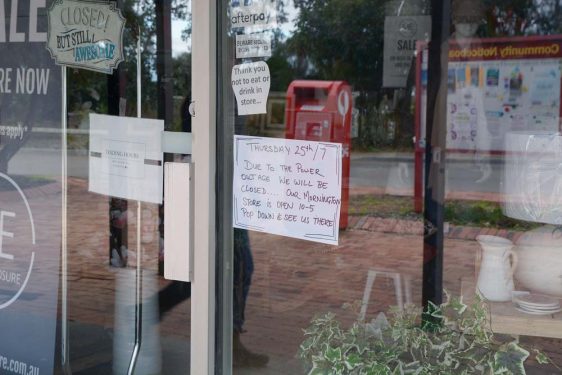 CLOSED!
BUT STILL
AWESOME
SALE
RE NOW
apply*
OSURE
re.com.au
TRADING HOURS
afterpay
BEWARE
Thank you
not to eat or
drink in
store...
THURSDAY 25th/7
DUE TO THE POWER
OUTAGE WE WILL BE
CLOSED.... OUR MORNINGTON
STORE IS OPEN 10-5
POP DOWN & SEE US THERE
SALE
Community Noticeboard